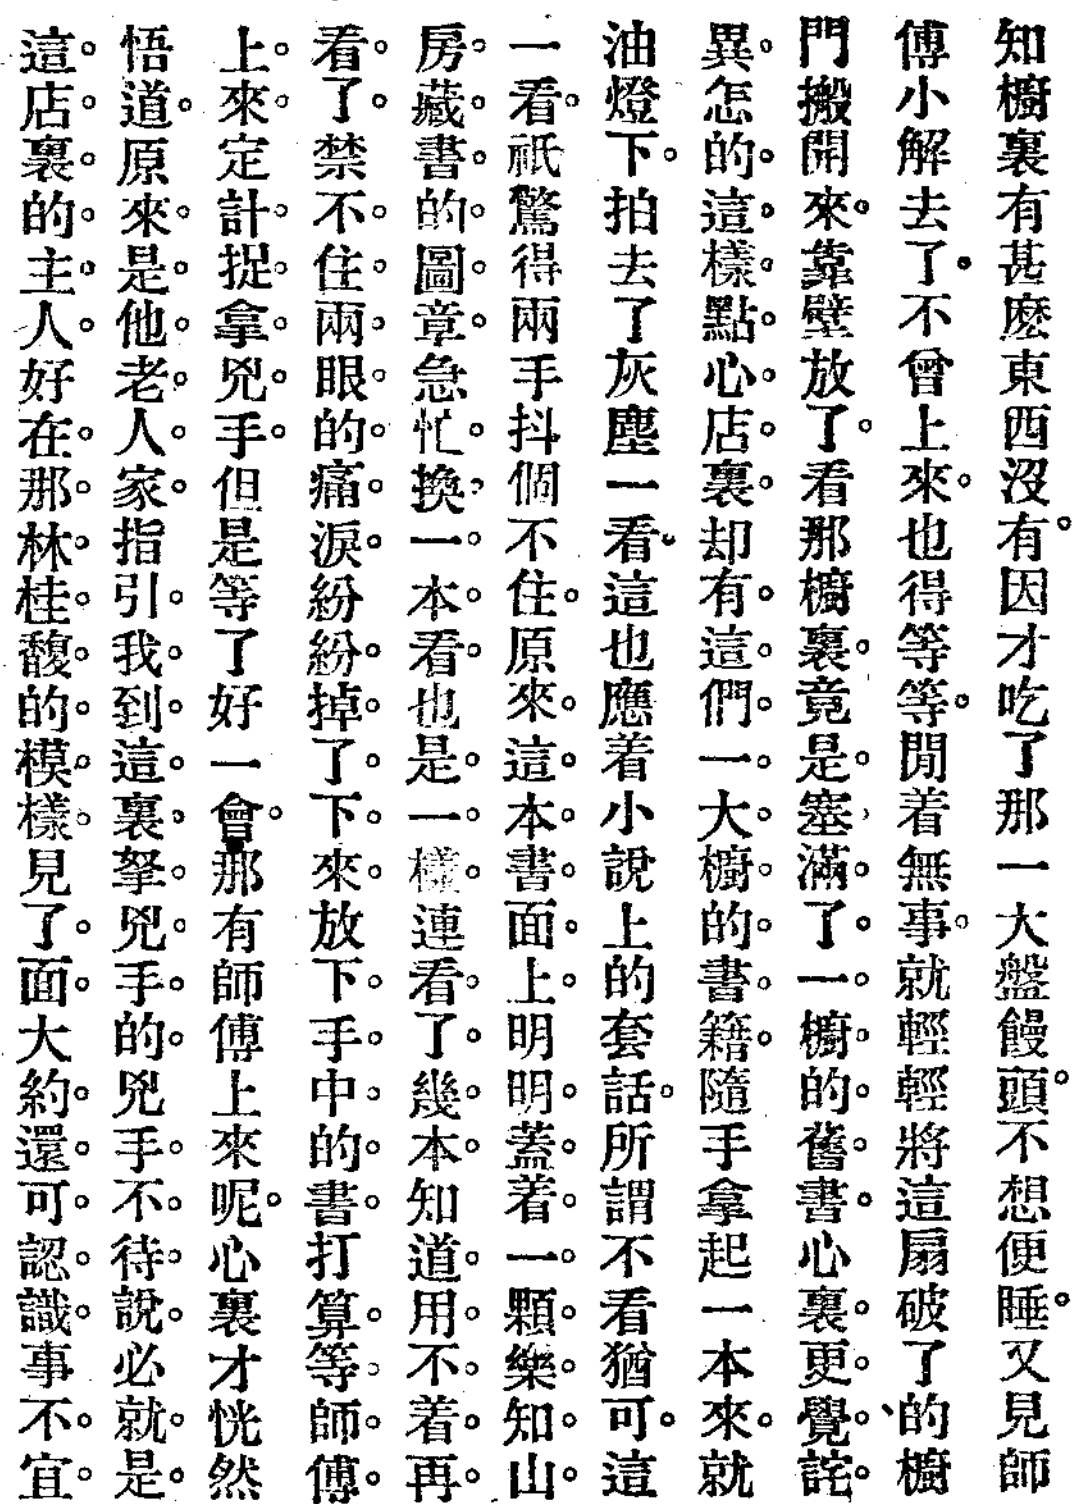 知櫥裏有甚麽東西沒有。因才吃了那一大盤饅頭。不想便睡。又見師
傅小解去了。不曾上來。也得等等。閒着無事。就輕輕將這扇破了的櫥
門搬開來。靠壁放了。看那櫥裏。竟是。塞。滿。了。一。櫥。的。舊。書。心裏。更。覺。詫。
異。怎。的。這。樣。點。心。店。裏。却有。這。們。一。大。櫥。的。書。籍。隨手拿起一本來。就
油燈下。拍去了灰塵一看。這也應着小說上的套話。所謂不看猶可。這
一看。祇驚得兩手抖個不住。原來。這。本。書。面。上。明明。蓋。着。一。顆。樂。知。山。
房。藏。書。的。圖。章。急忙。換。一。本。看。也是。一。樣。連看。了。幾。本。知道。用。不。着。再。
看。了。禁不。住。兩。眼。的。痛。淚。紛紛。掉。了。下。來。放下。手。中。的。書。打算。等。師。傅。
上。來。定計。捉。拿。兇。手。但是等了好一會。那有師傅上來呢。心裏才恍然
悟道。原來。是。他。老。人。家。指引。我。到。這。裏。拏。兇。手。的。兇手。不。待。說。必就。是。
這。店。裏。的。主。人。好在。那。林。桂。馥。的。模。樣。見了。面。大約。還。可。認。識。事不。宜。